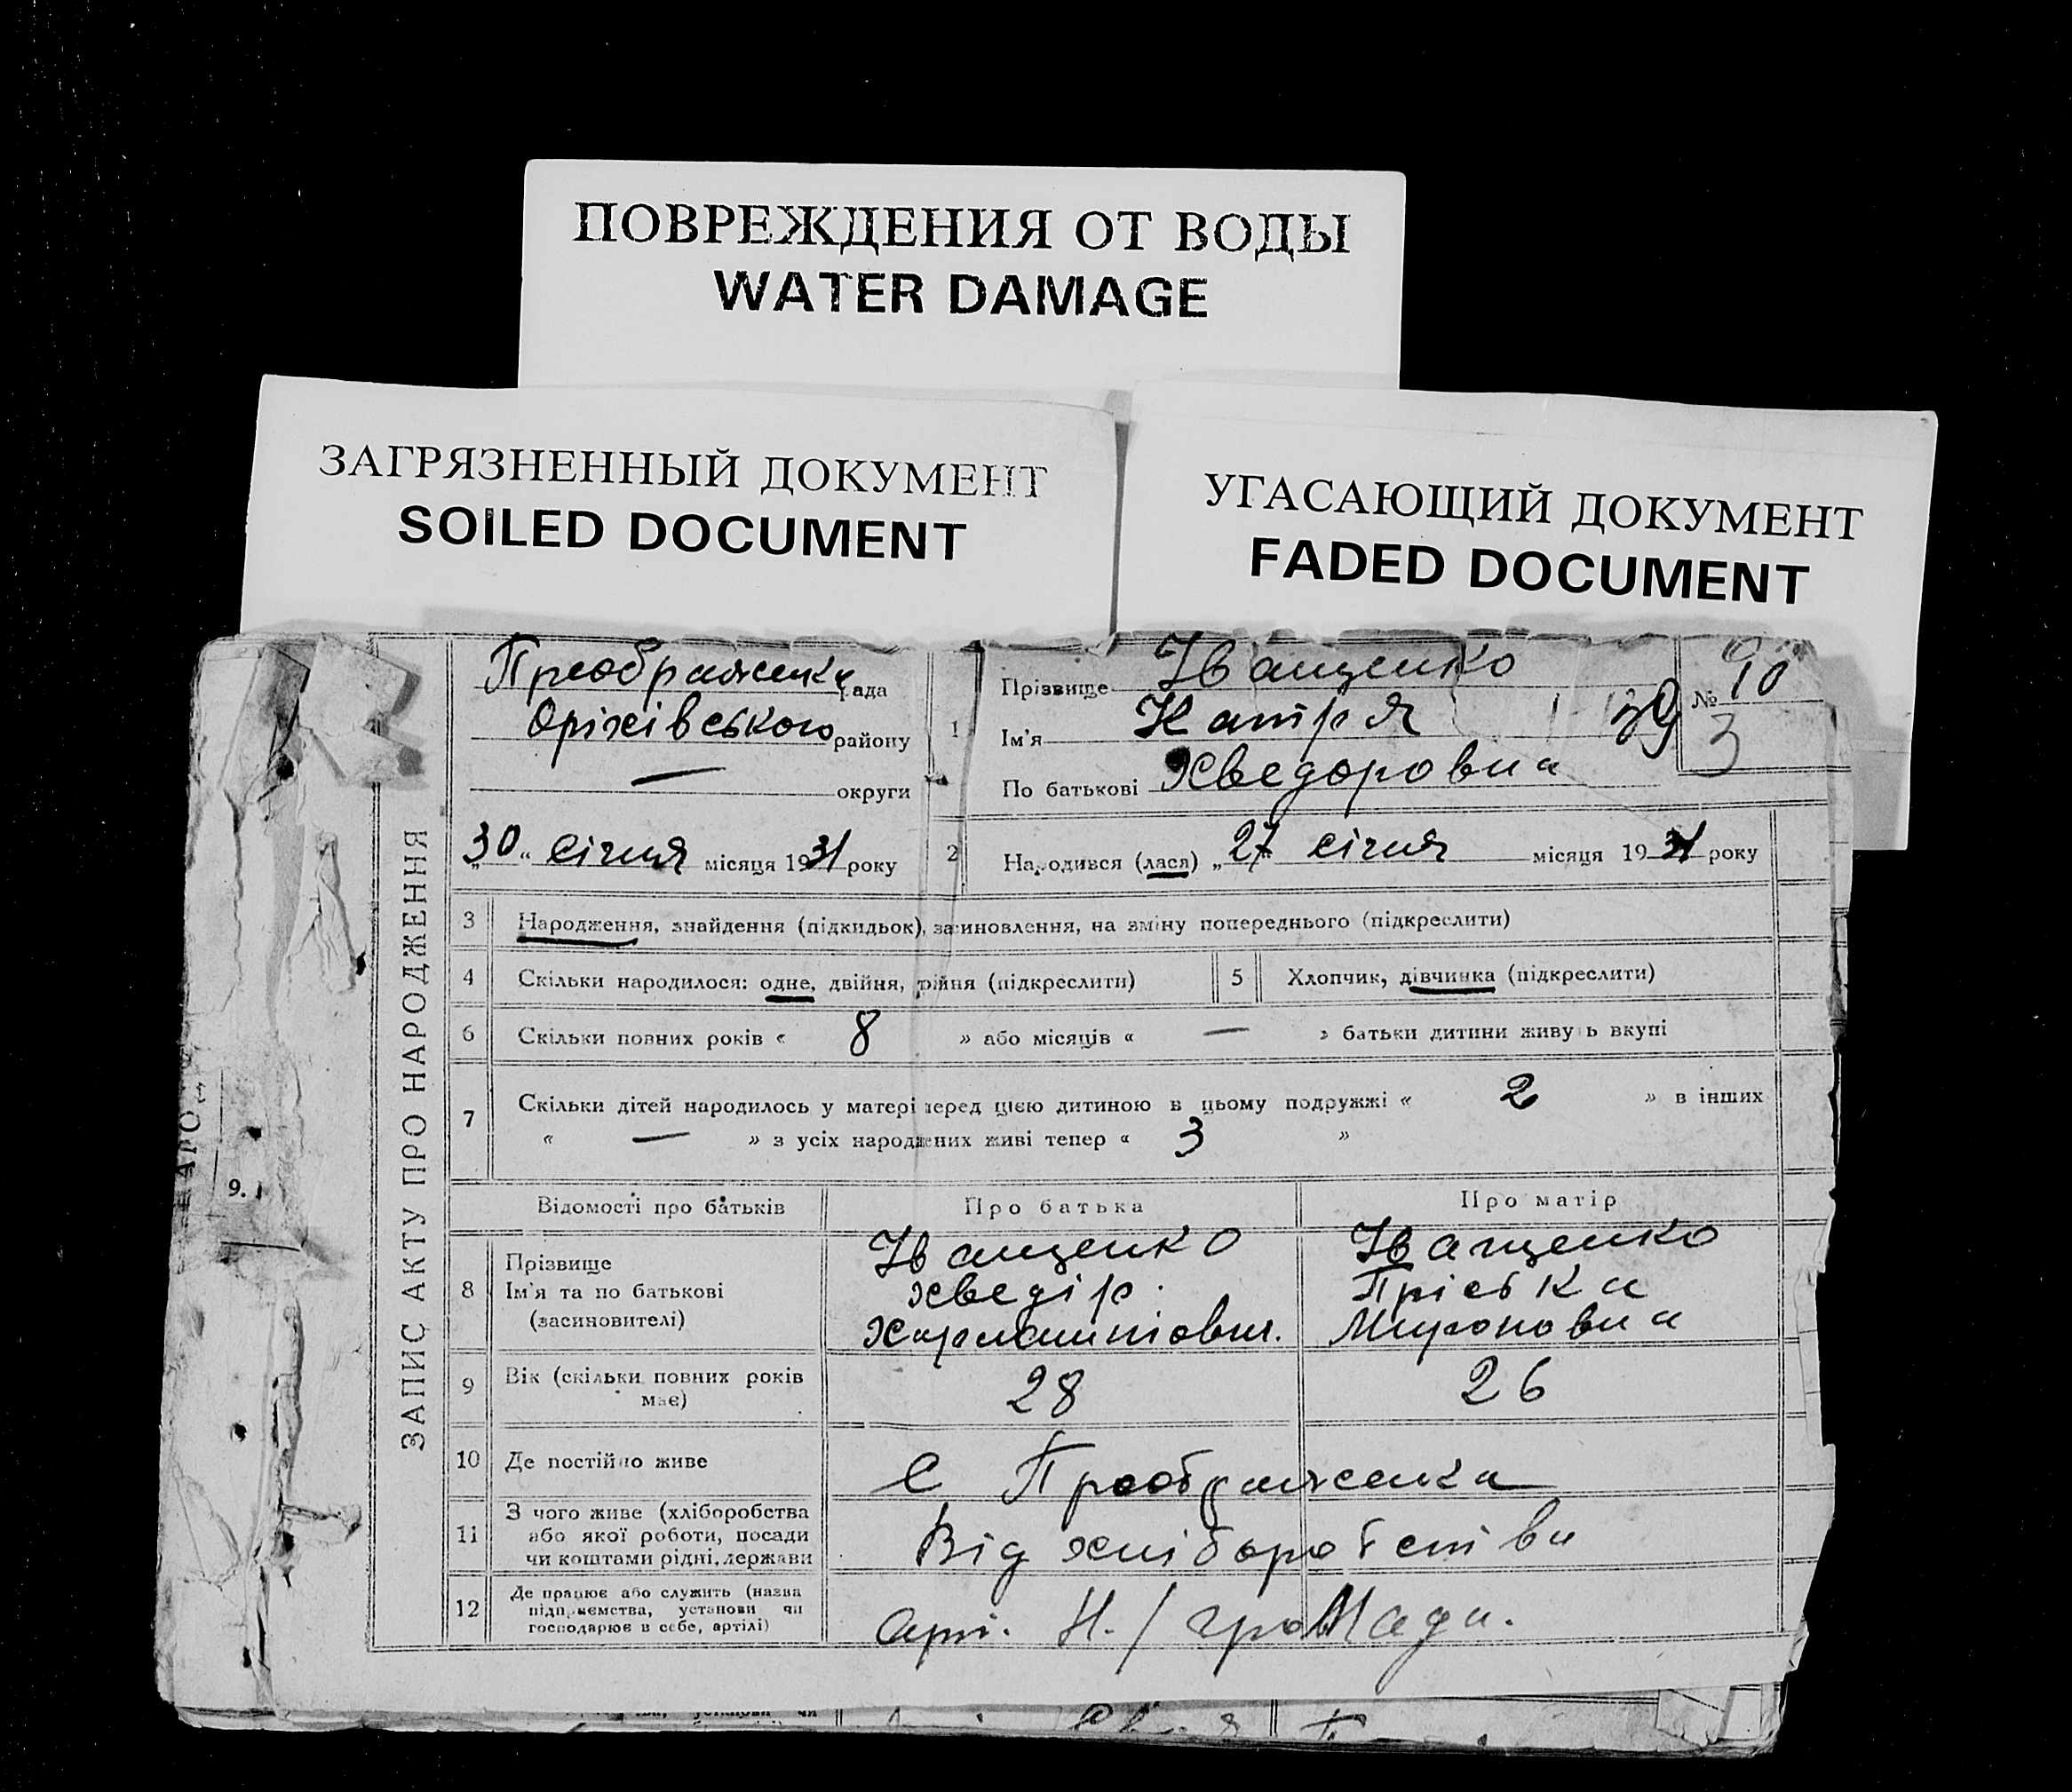 ПОВРЕЖДЕНИЯ ОТ ВОДЫ
WATER DAMAGE
ЗАГРЯЗНЕННЫЙ ДОКУМЕНТ
SOILED DOCUMENT
УГАСАЮЩИЙ ДОКУМЕНТ
FADED DOCUMENT
ЗАПИС АКТУ ПРО НАРОДЖЕННЯ
Преображенка рада
Оріхівського району
— округи
„30“ січня місяця 1931 року
1 Прізвище Іващенко
Ім'я Катря 39
По батькові Хведоровна
№ 10
3
2 Народився (лася) „27 січня місяця 1931 року
3 Народження, знайдення (підкидьок), засиновлення, на зміну попереднього (підкреслити)
4 Скільки народилося: одне, двійня, трійня (підкреслити) 5 Хлопчик, дівчинка (підкреслити)
6 Скільки повних років « 8 » або місяців « — » батьки дитини живуть вкупі
7 Скільки дітей народилось у матері перед цією дитиною в цьому подружжі « 2 » в інших
« — » з усіх народжених живі тепер « 3 »
Відомості про батьків Про батька Про матір
8 Прізвище Іващенко Іващенко
Ім'я та по батькові Хведір Пріська
(засиновителі) Харлампіович. Мироновна
9 Вік (скільки повних років має) 28 26
10 Де постійно живе с Преображенка
11 З чого живе (хліборобства
або якої роботи, посади
чи коштами рідні, держави Від хліборобства
12 Де працює або служить (назва
підприємства, установи чи
господарює в себе, артілі) арт. Н./громада.
9.